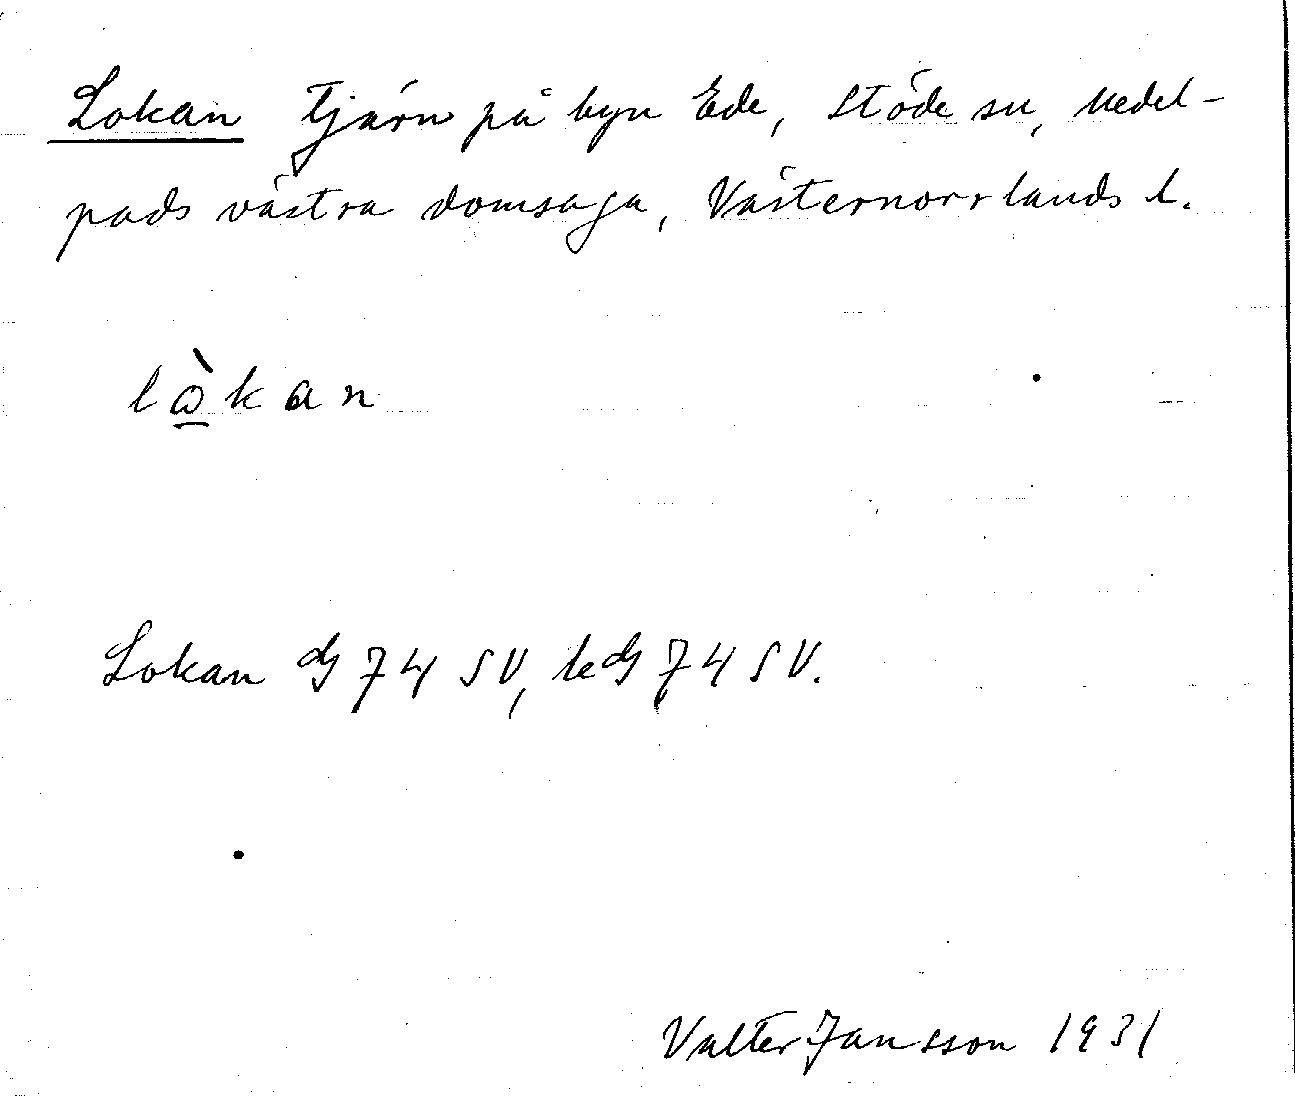 Lokan Tjärn på byn Ede, Stöde sn, Medel-
pads västra domsaga, Västernorrlands l.
lò̲kan
Lokan dg 74 SV, led 74 SV.
Valter Jansson 1931